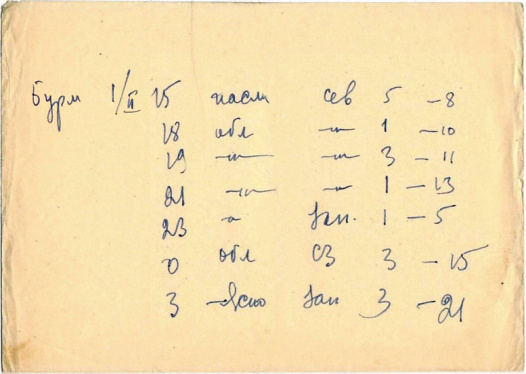 Бурм 1/II 15 пасм сев 5 -8
18 обл -"- 1 -10
19 -"- -"- 3 -11
21 -"- -"- 1 -13
23 -"- Зап. 1 -5
0 обл СЗ 3 -15
3 ясно Зап 3 -21